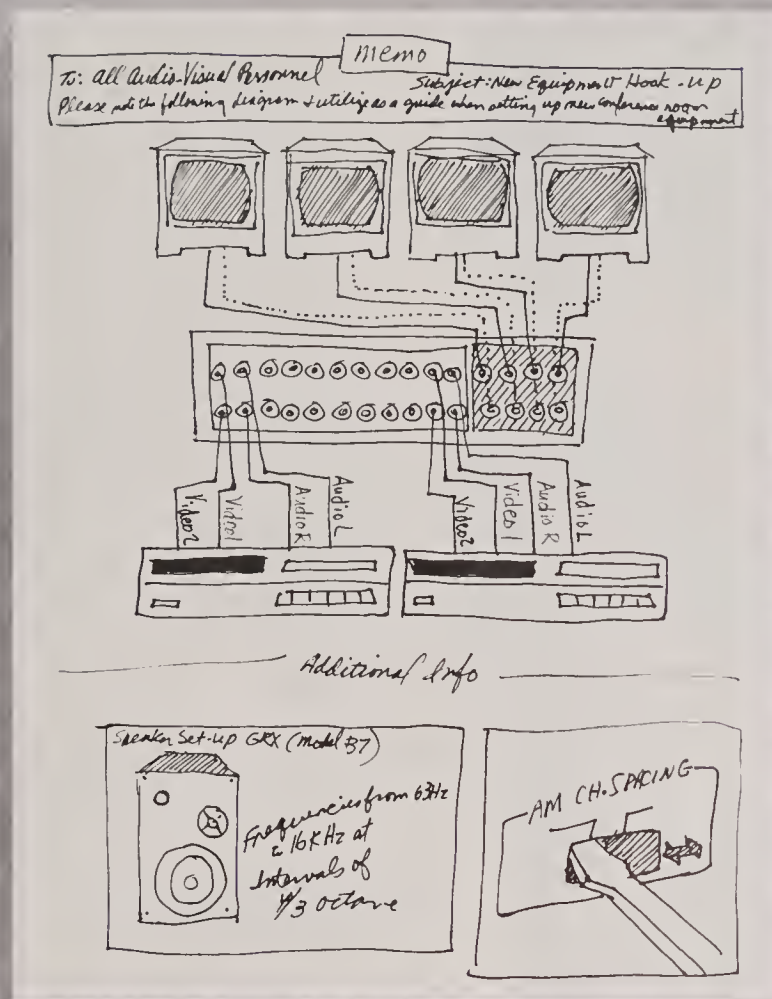 memo
To: All Audio-Visual Personnel Subject: New Equipment Hook-Up
Please note the following diagram & utilize as a guide when setting up new conference room
equipment
Video2 Video1 Audio R Audio L Video2 Video 1 Audio R Audio L
Additional Info
Speaker Set-up GRX (Model B7)
Frequencies from 63Hz
to 16KHz at
Intervals of
1/3 octave
AM CH. SPACING